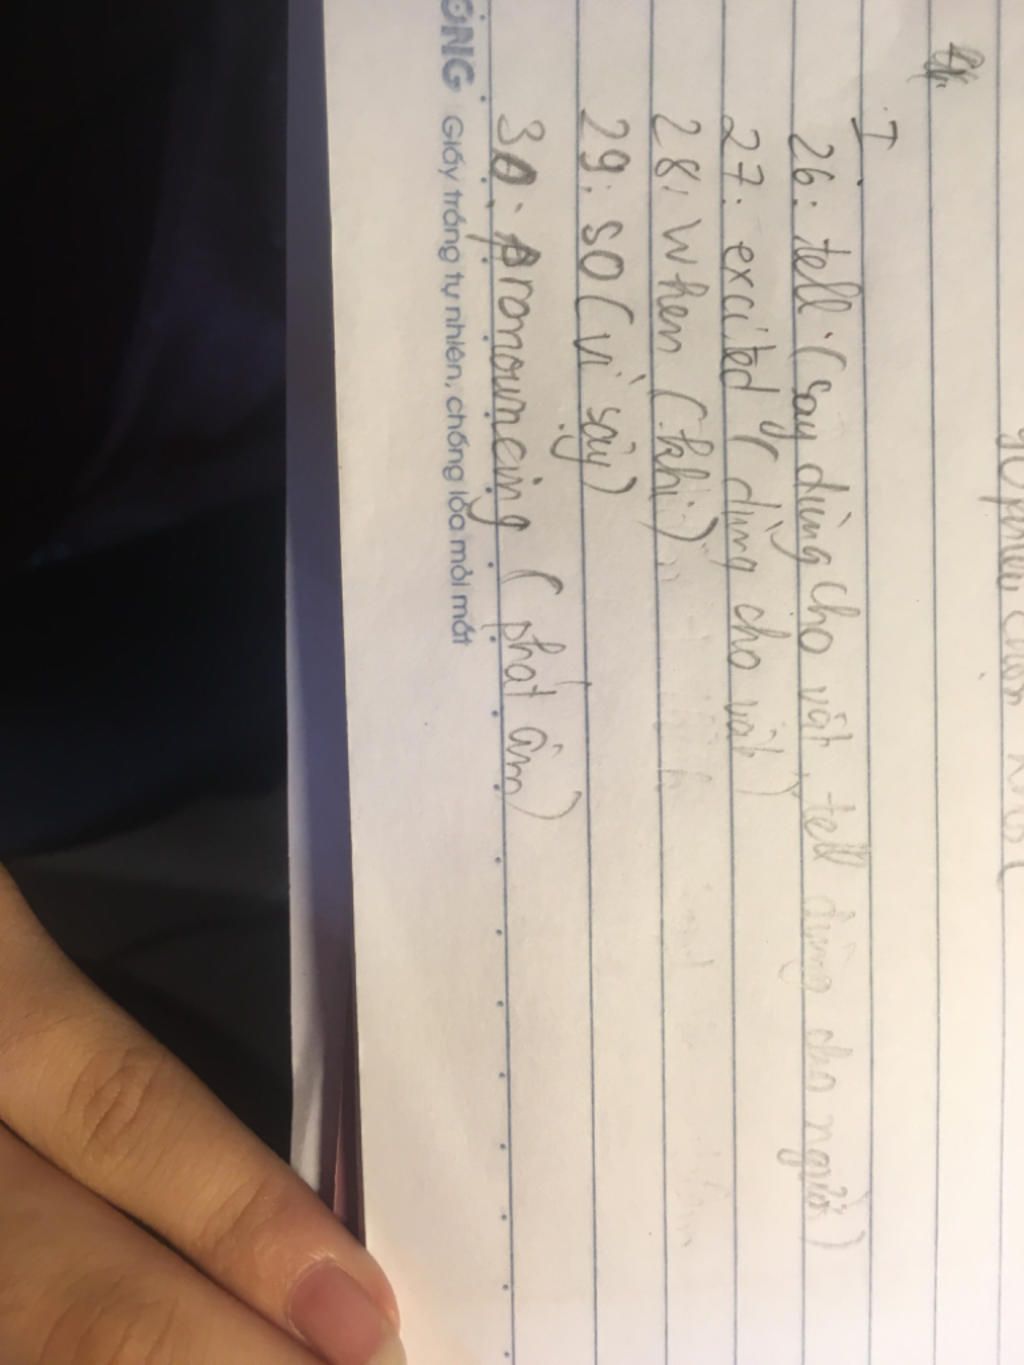 I
26: tell (say dùng cho vật, tell dùng cho người)
27: excited (dùng cho vật)
28: When (khi)
29: so (vì vậy)
30. pronouncing (phát âm)
Giấy trắng tự nhiên, chống lóa mỏi mắt